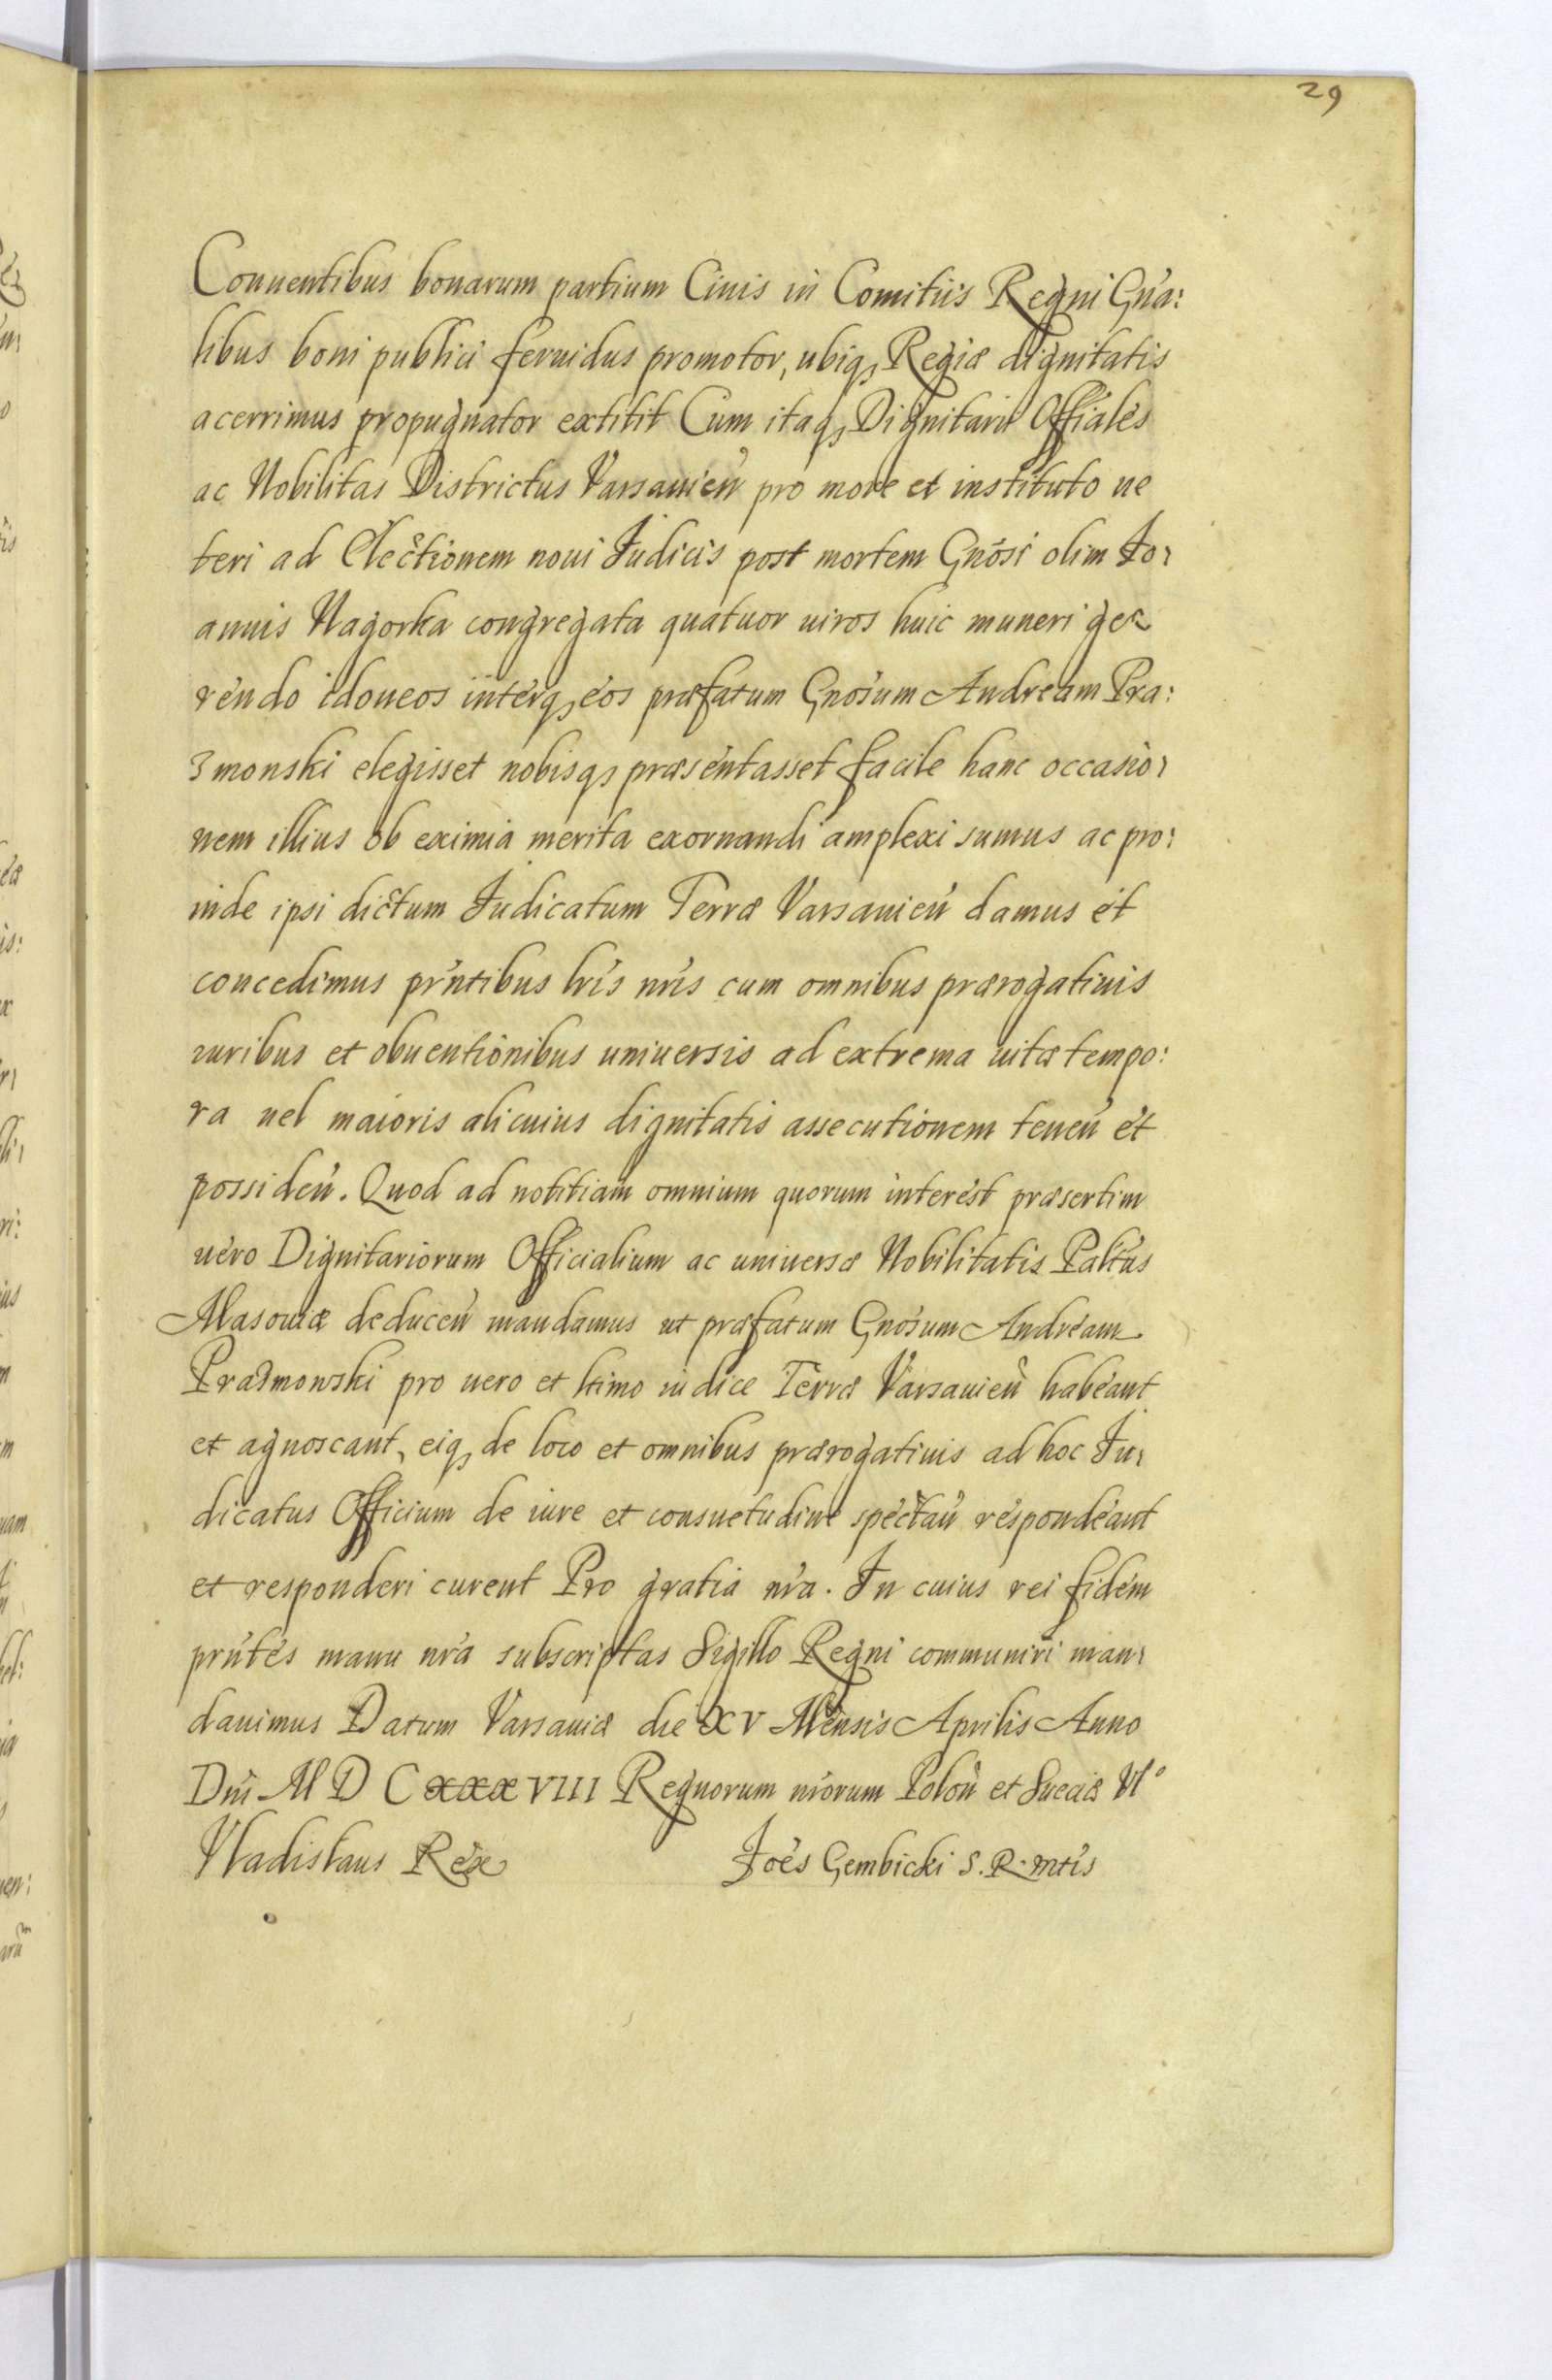 29
Conuentibus bonarum partium Ciuis in Comitiis Regni Gña:
libus boni publici feruidus promotor, ubiqꝫ Regiæ dignitatis
acerrimus propugnator extitit Cum itaqꝫ Dignitarii Offiáles
ac Nobilitas Districtus Varsauień pro more et instituto ue
teri ad Electionem noui Iudicis post mortem Gnõsi olim Io-
annis Nagorka congregata quatuor uiros huic muneri ge-
rendo idoneos interqꝫ eos præfatum Gnõsum Andream Pra:
zmonski elegisset nobisqꝫ præsentasset facile hanc occasio-
nem illius ob eximia merita exornandi amplexi sumus ac pro:
inde ipsi dictum Iudicatum Terræ Varsauień damus et
concedimus pr̃ntibus lr̃is nr̃is cum omnibus prærogatiuis
iuribus et obuentionibus uniuersis ad extrema uitæ tempo:
ra uel maioris alicuius dignitatis assecutionem teneń et
possideń. Quod ad notitiam omnium quorum interest præsertim
uero Dignitariorum Officialium ac uniuersæ Nobilitatis Paltũs
Masouiæ deduceń mandamus ut præfatum Gnõsum Andream
Prazmowski pro uero et ltimo iudice Terræ Varsauień habeant
et agnoscant, eiqꝫ de loco et omnibus prærogatiuis ad hoc Iu-
dicatus Officium de iure et consuetudine spectań respondeant
et responderi curent Pro gratia nr̃a. In cuius rei fidem
pr̃ntes manu nr̃a subscriptas Sigillo Regni communiri man-
dauimus Datum Varsauiæ die XV Mensis Aprilis Anno
Dnĩ M D C XXXVIII Regnorum nr̃orum Poloń et Sueciæ VIº
Vladislaus Rex Joẽs Gembicki S. R. Mtis